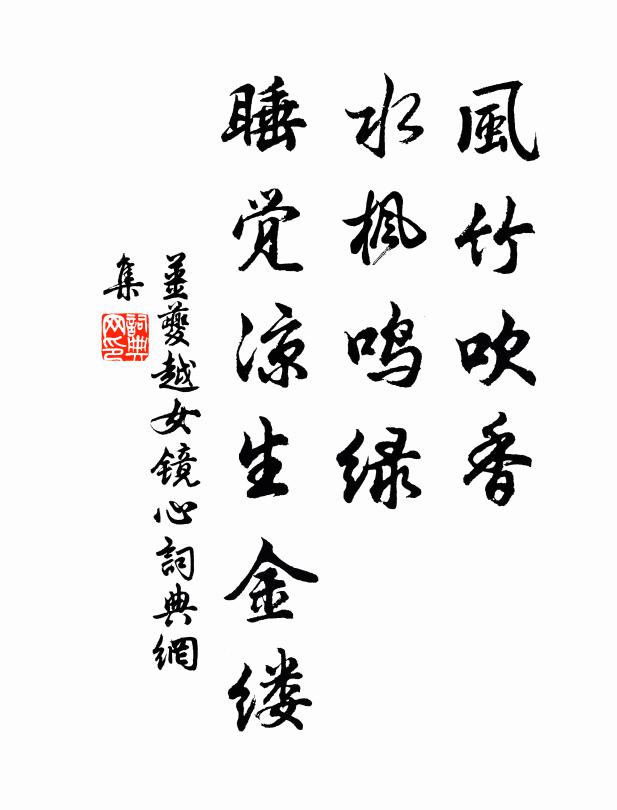 風竹吹香
水楓鸣绿
睡觉凉生金缕
姜夔越女镜心詞典網
集
詞典
网印